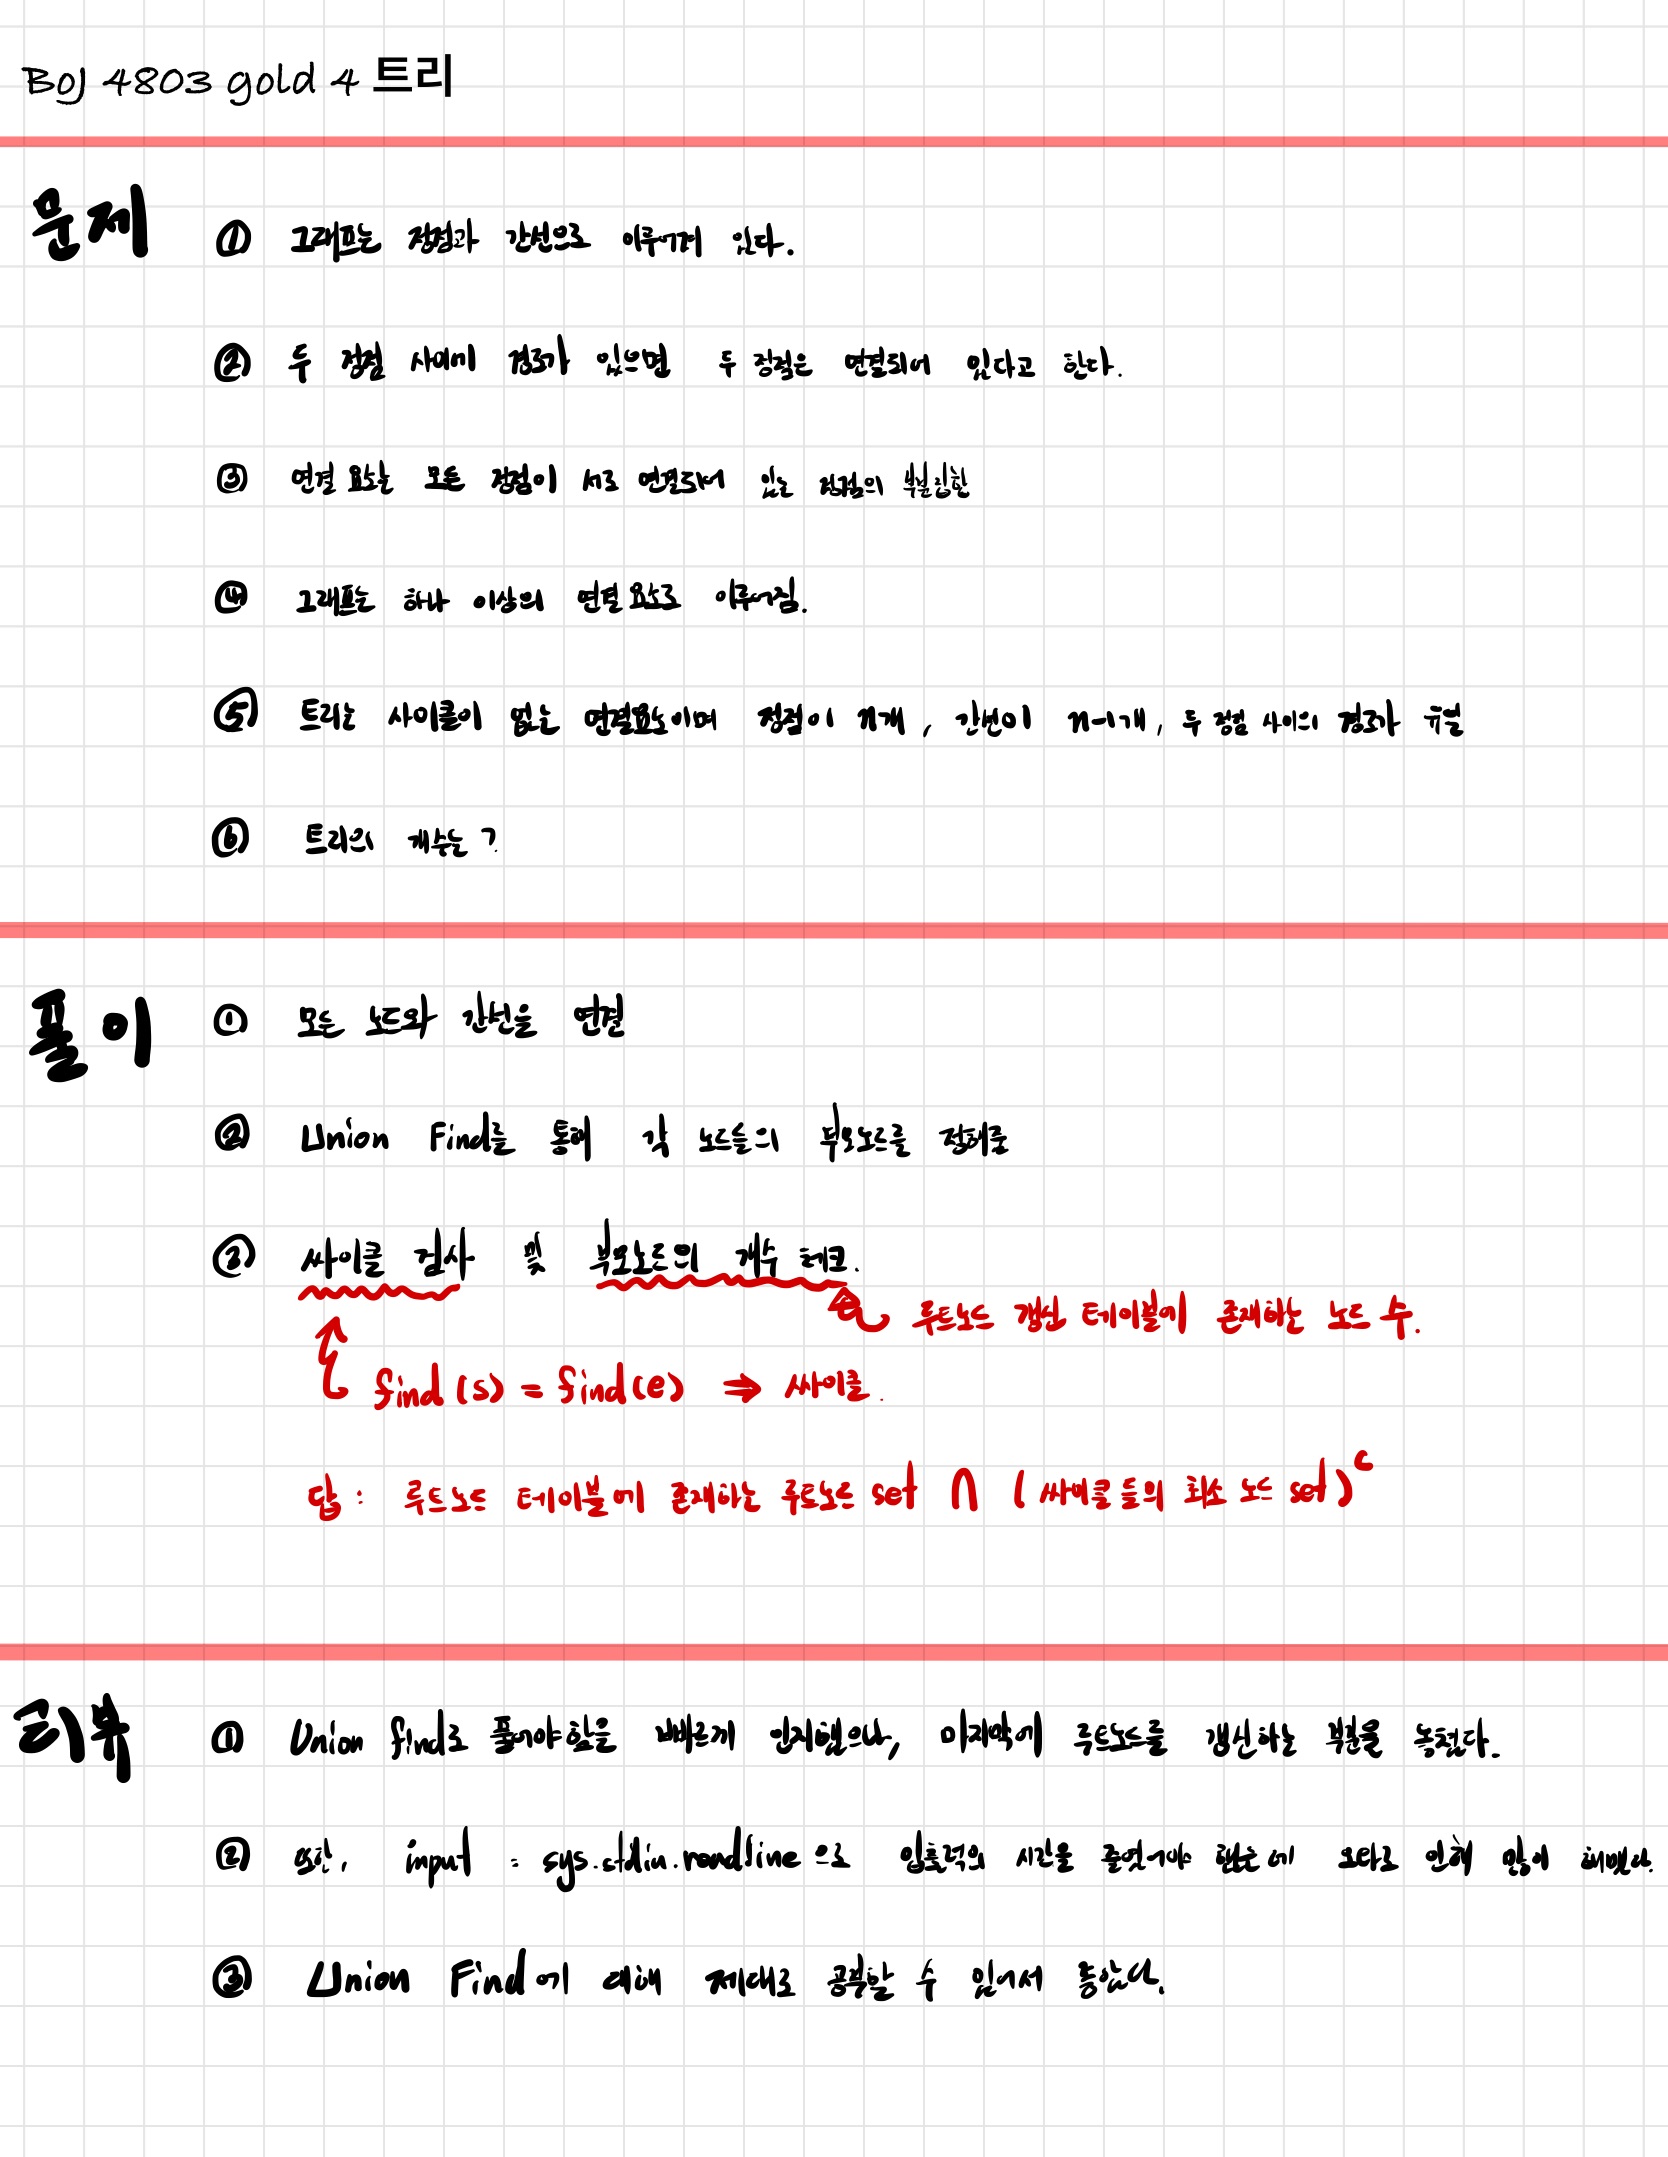 BOJ 4803 gold 4 트리
문제
① 그래프는 정점과 간선으로 이루어져 있다.
② 두 정점 사이에 경로가 있으면 두 정점은 연결되어 있다고 한다.
③ 연결 요소는 모든 정점이 서로 연결되어 있는 정점의 부분집합
④ 그래프는 하나 이상의 연결 요소로 이루어짐.
⑤ 트리는 사이클이 없는 연결요소이며 정점이 n개, 간선이 n-1개, 두 정점 사이의 경로가 유일
⑥ 트리의 개수는?
풀이
① 모든 노드와 간선을 연결
② Union Find를 통해 각 노드들의 부모노드를 정해줌
③ 싸이클 검사 및 부모노드의 개수 체크.
루트노드 갱신 테이블에 존재하는 노드 수.
find(s) = find(e) ⇒ 싸이클.
답: 루트노드 테이블에 존재하는 루트노드 set ∩ (싸이클들의 최소 노드 set)ᶜ
리뷰
① Union find로 풀어야함을 빠르게 인지했으나, 마지막에 루트노드를 갱신하는 부분을 놓쳤다.
② 또한, input = sys.stdin.readline으로 입출력의 시간을 줄였어야 했는데 오타로 인해 많이 헤맸다.
③ Union Find에 대해 제대로 공부할 수 있어서 좋았다.